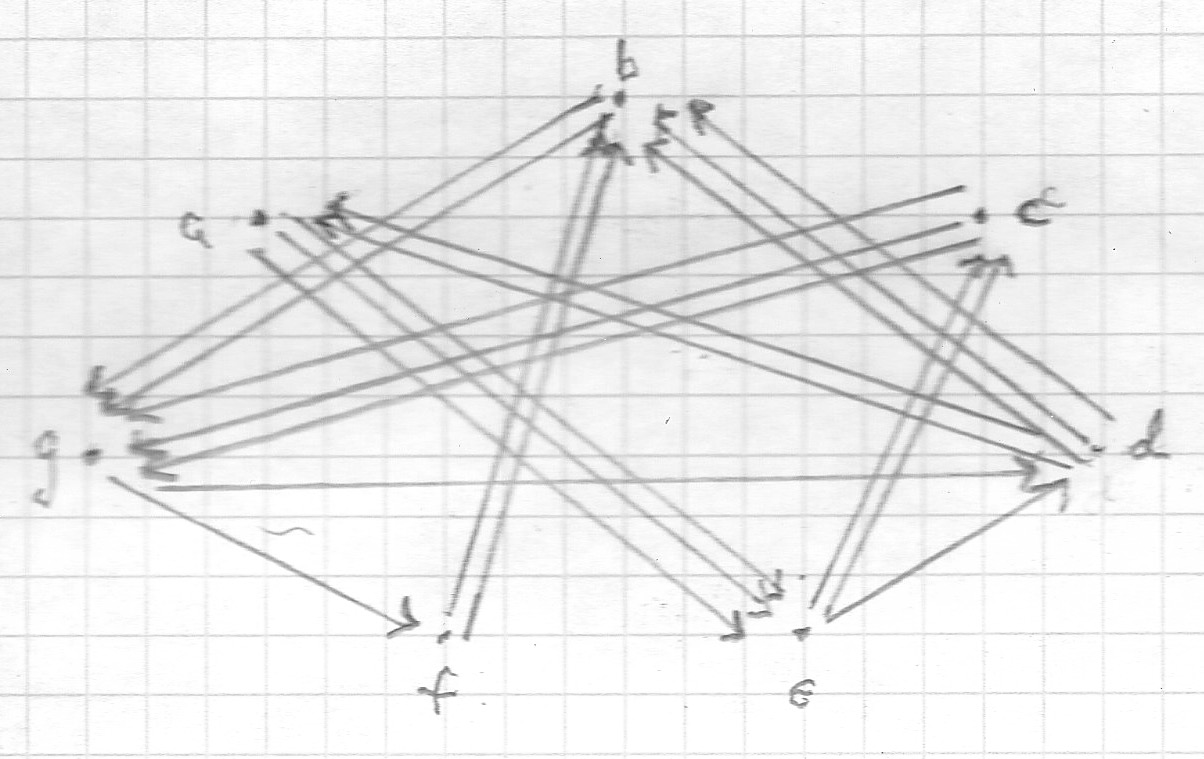 b
a
c
g
d
f
e